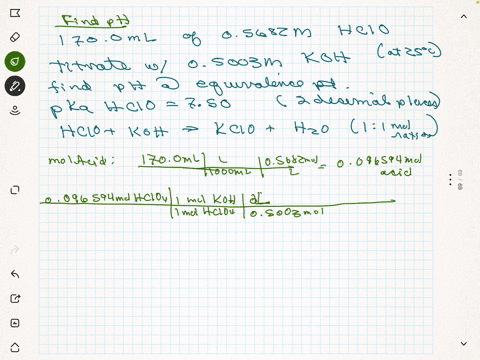 Find pH
170.0mL of 0.5682M HClO
titrate w/ 0.5003M KOH (at 25°C)
find pH @ equivalence pt.
pKa HClO = 7.50 (2 decimal places)
HClO + KOH → KClO + H2O (1:1 mol ratio)
mol Acid: 170.0mL | L | 0.5682mol = 0.096594mol acid
1000mL | L
0.096594mol HClO | 1 mol KOH | L
1 mol HClO | 0.5003mol